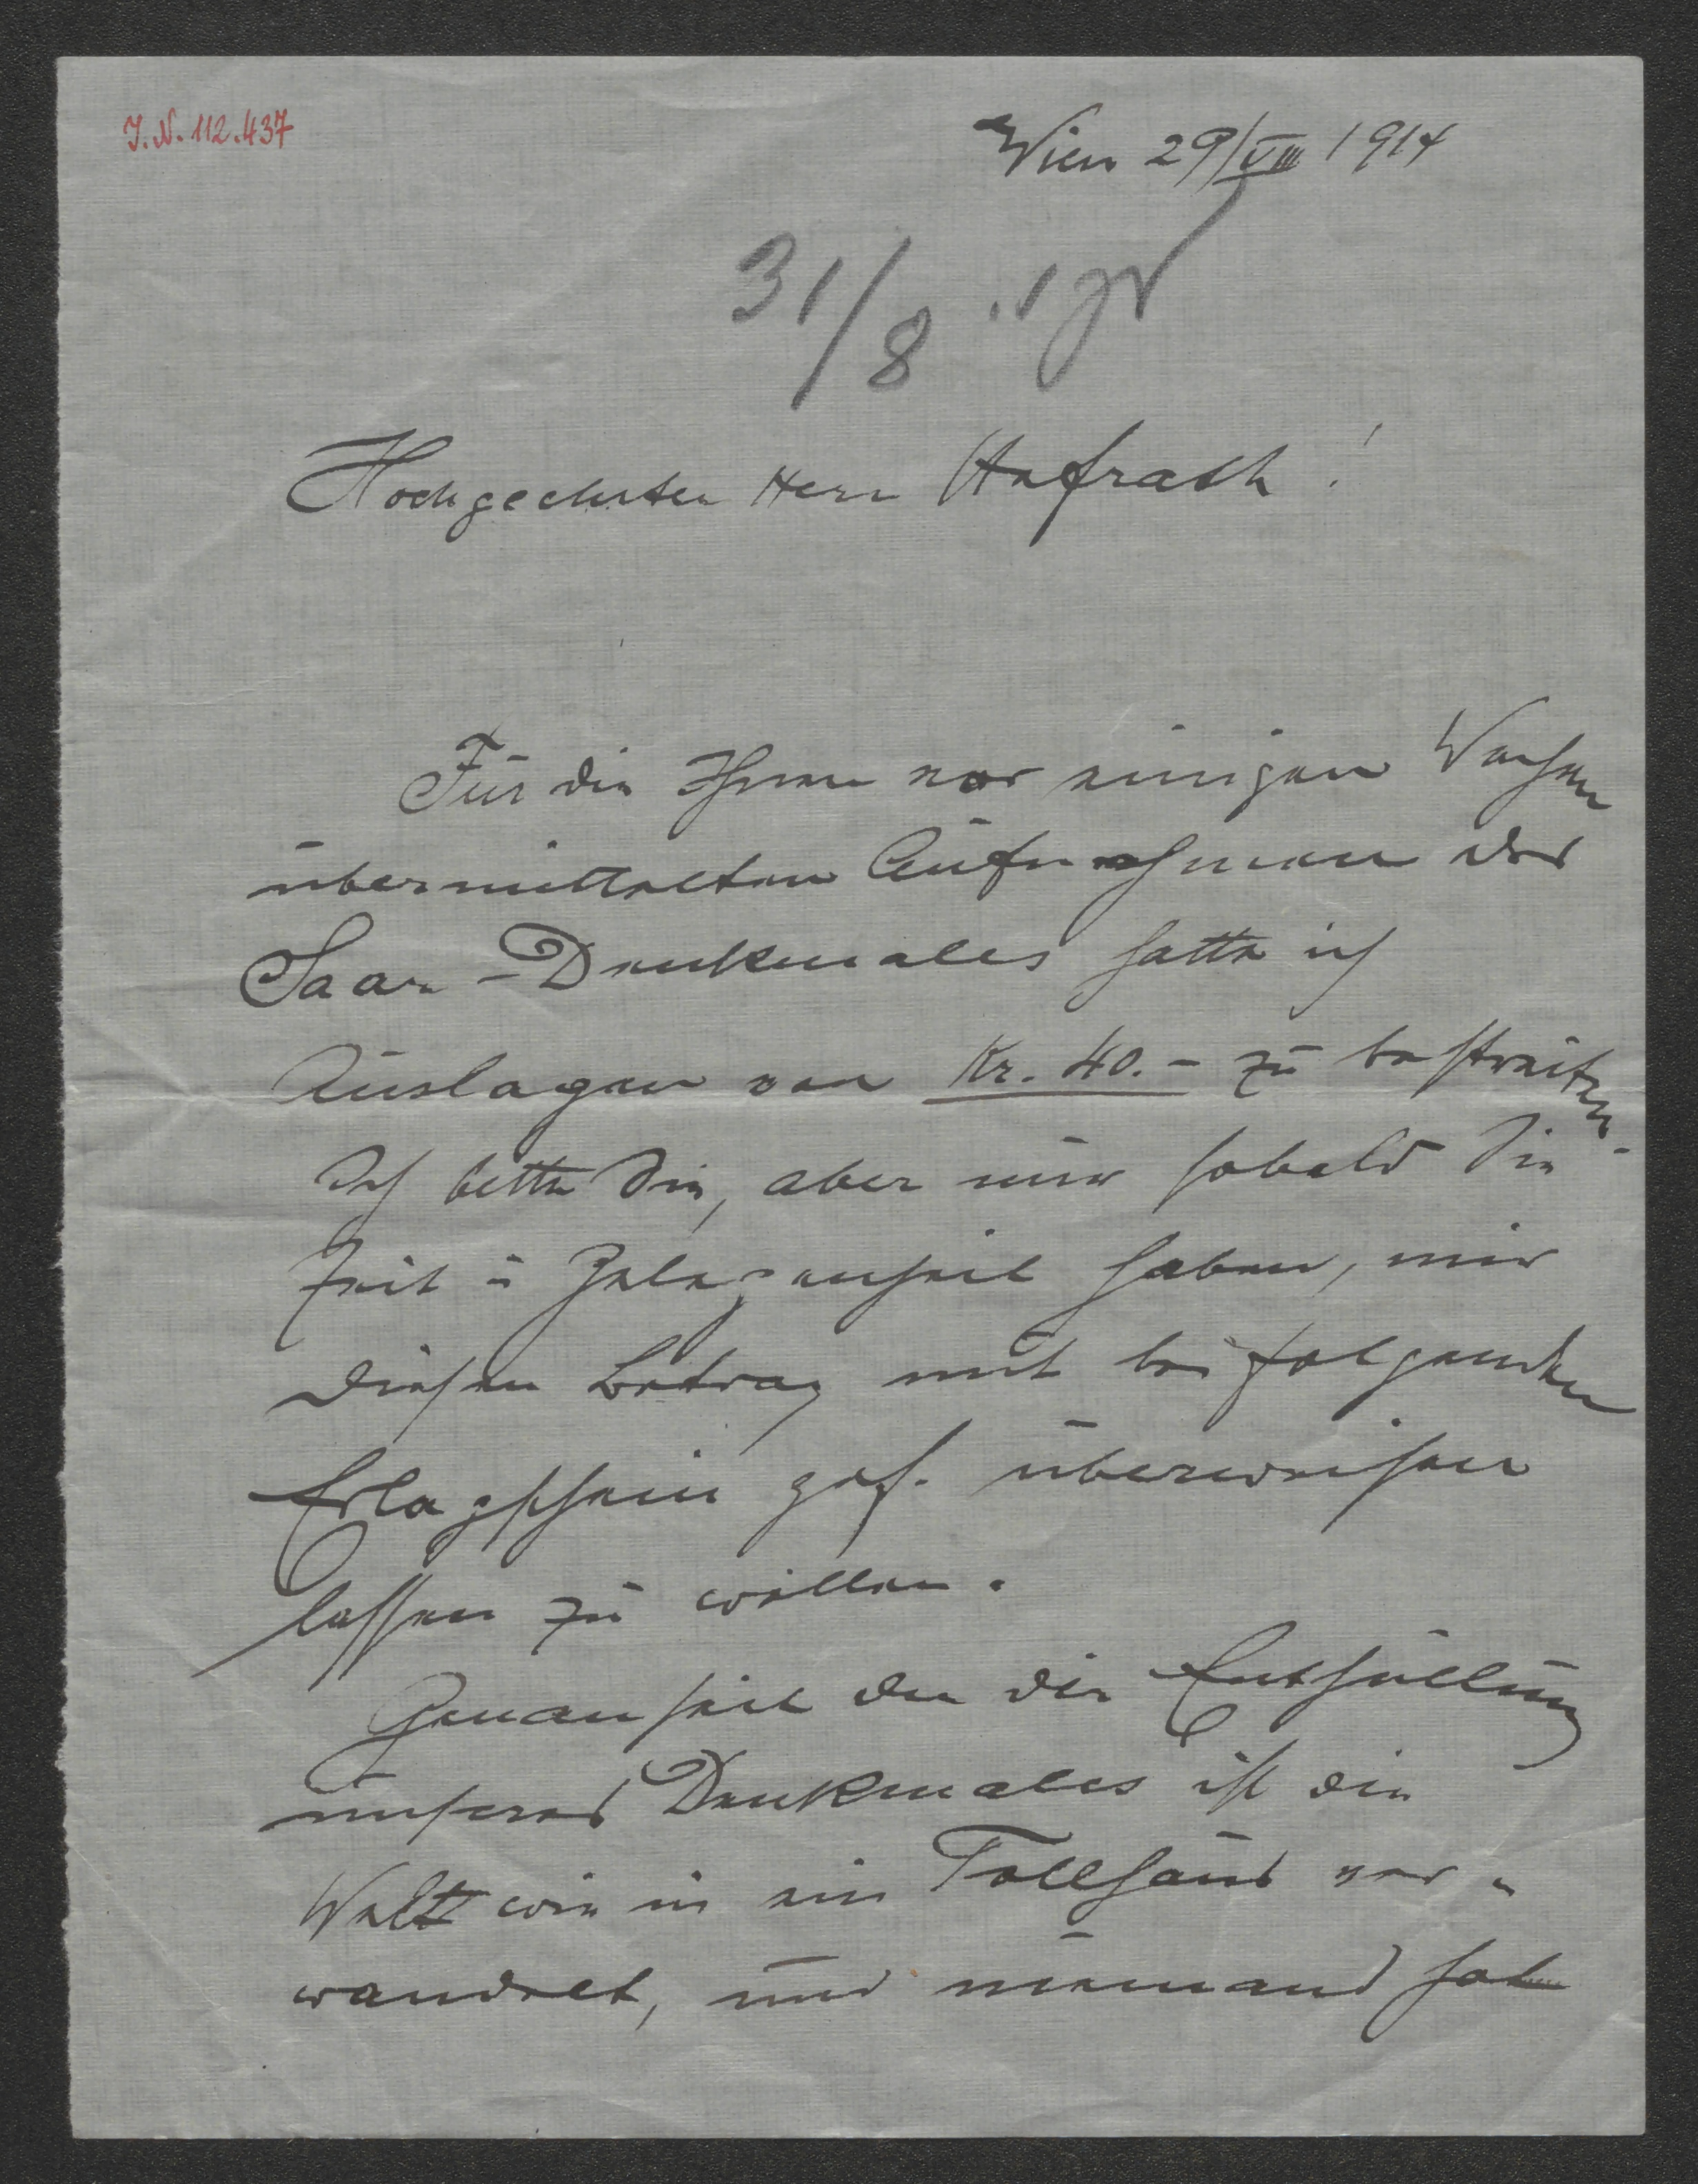 J.N. 112.437
Wien 29/VIII 1914
31/8
Hochgeehrter Herr Hofrath!
Für die Ihnen vor einigen Wochen
übermittelten Aufnahmen des
Saar-Denkmales hatte ich
Auslagen von Kr. 40.- zu bestreiten.
Ich bitte Sie, aber nur sobald Sie
Zeit u Gelegenheit haben, mir
diesen Betrag mit beifolgenden
Erlagschein gef. überweisen
lassen zu wollen.
Genau seit der
Enthüllung
unseres Denkmales ist die
Welt wie in ein Tollhaus ver-
wandelt, und niemand hat